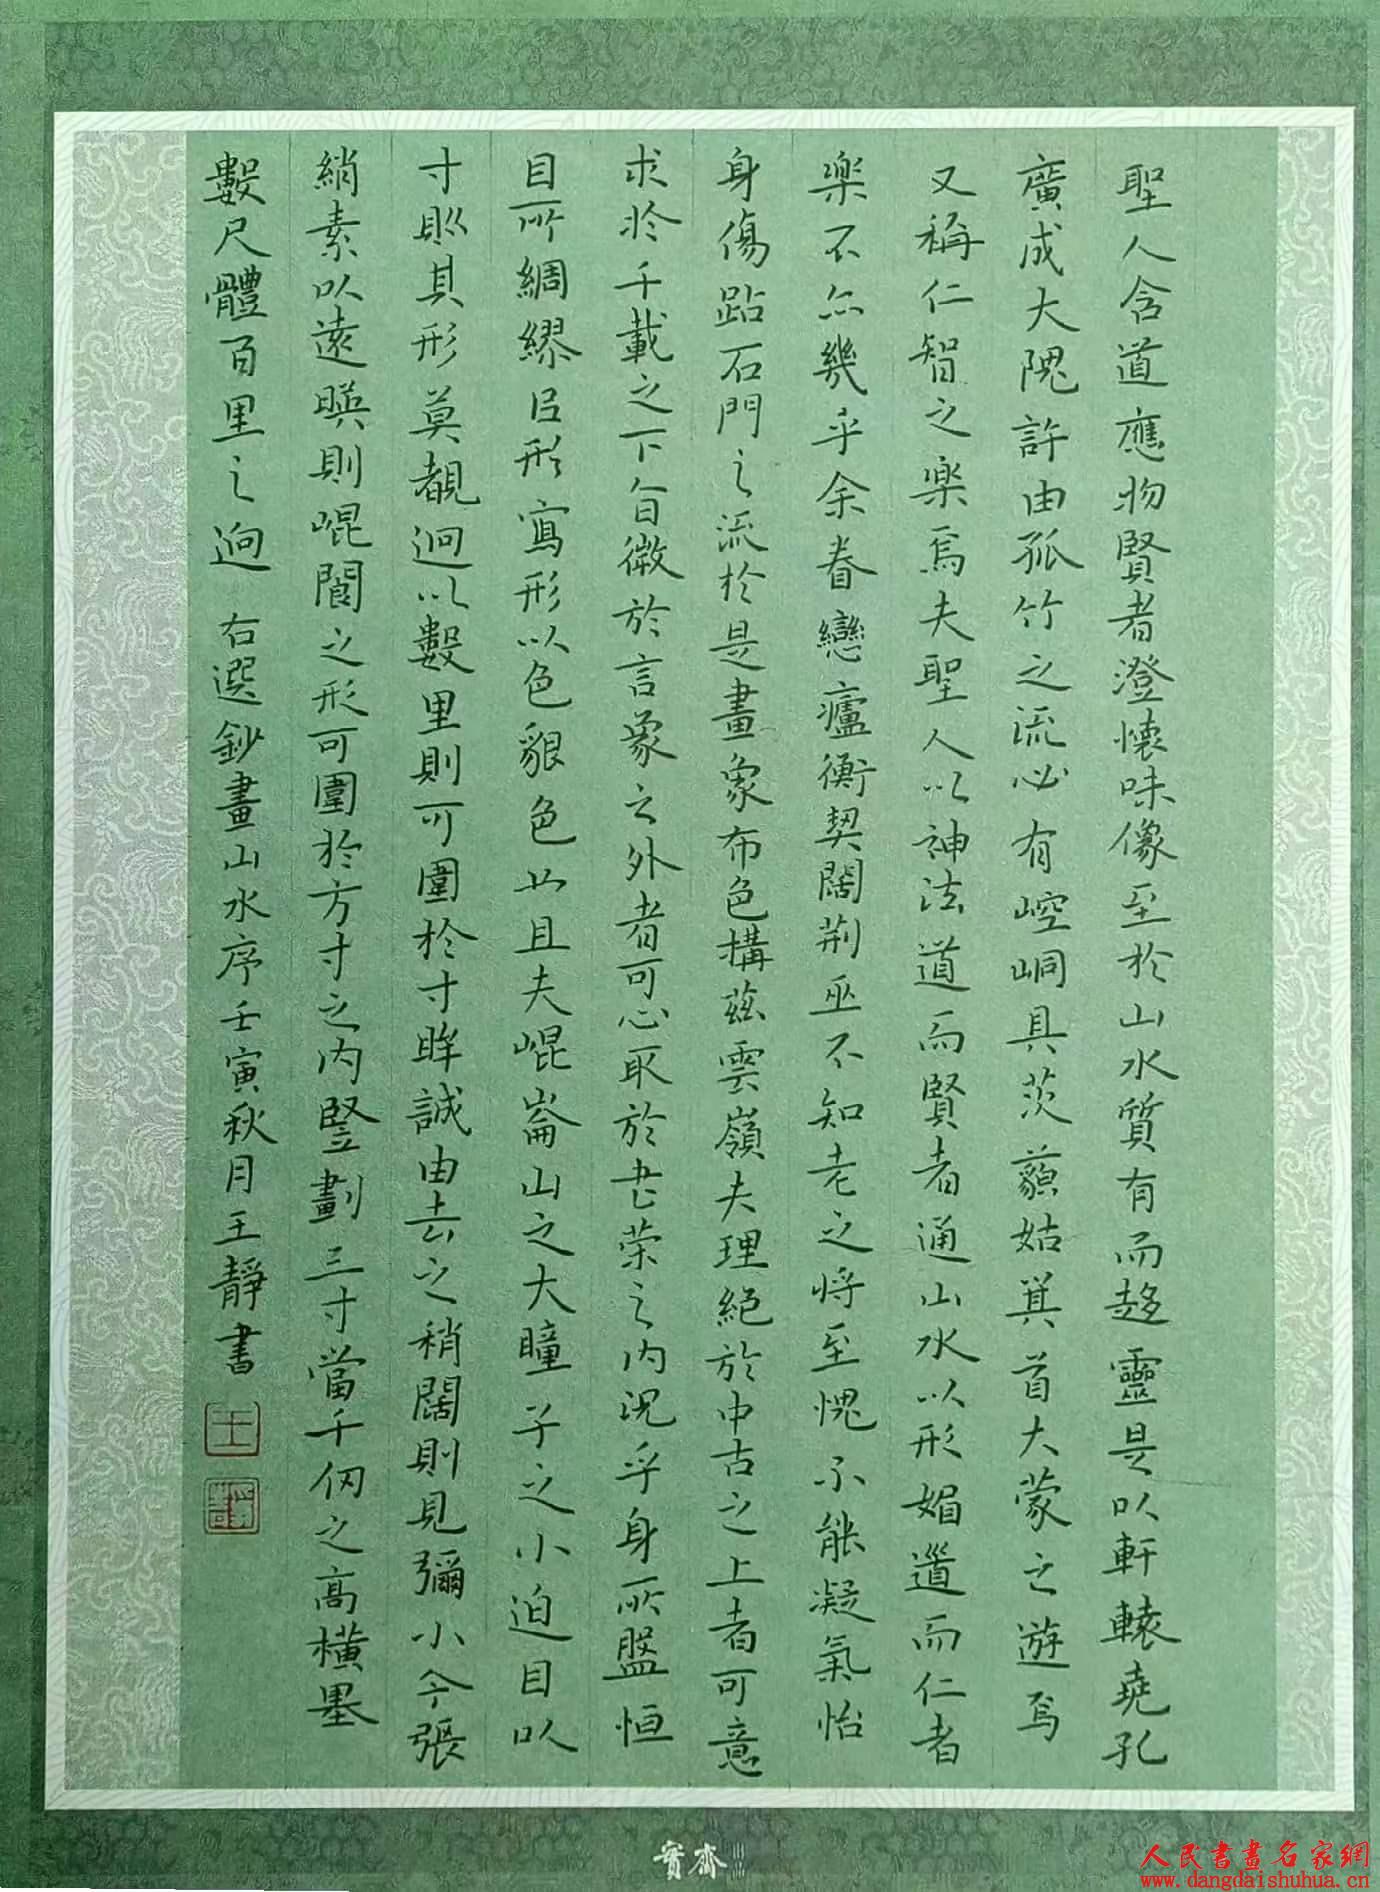 聖人含道應物賢者澄懷味像至於山水質有而趍靈是以軒轅堯孔
廣成大隗許由孤竹之流必有崆峒具茨藐姑箕首大蒙之遊焉
又稱仁智之樂焉夫聖人以神法道而賢者通山水以形媚道而仁者
樂不亦幾乎余眷戀廬衡契闊荊巫不知老之將至愧不能凝氣怡
身傷跕石門之流於是畫象布色構茲雲嶺夫理絕於中古之上者可意
求於千載之下旨微於言象之外者可心取於書策之内況乎身所盤恒
目所綢繆以形寫形以色貌色也且夫崐崙山之大瞳子之小迫目以
寸則其形莫覩迥以數里則可圍於寸眸誠由去之稍闊則見彌小今張
綃素以遠暎則崐閬之形可圍於方寸之内竪劃三寸當千仞之高橫墨
數尺體百里之迥 右選鈔畫山水序壬寅秋月王靜書
寶齋
人民書畫名家網
www.dangdaishuhua.cn